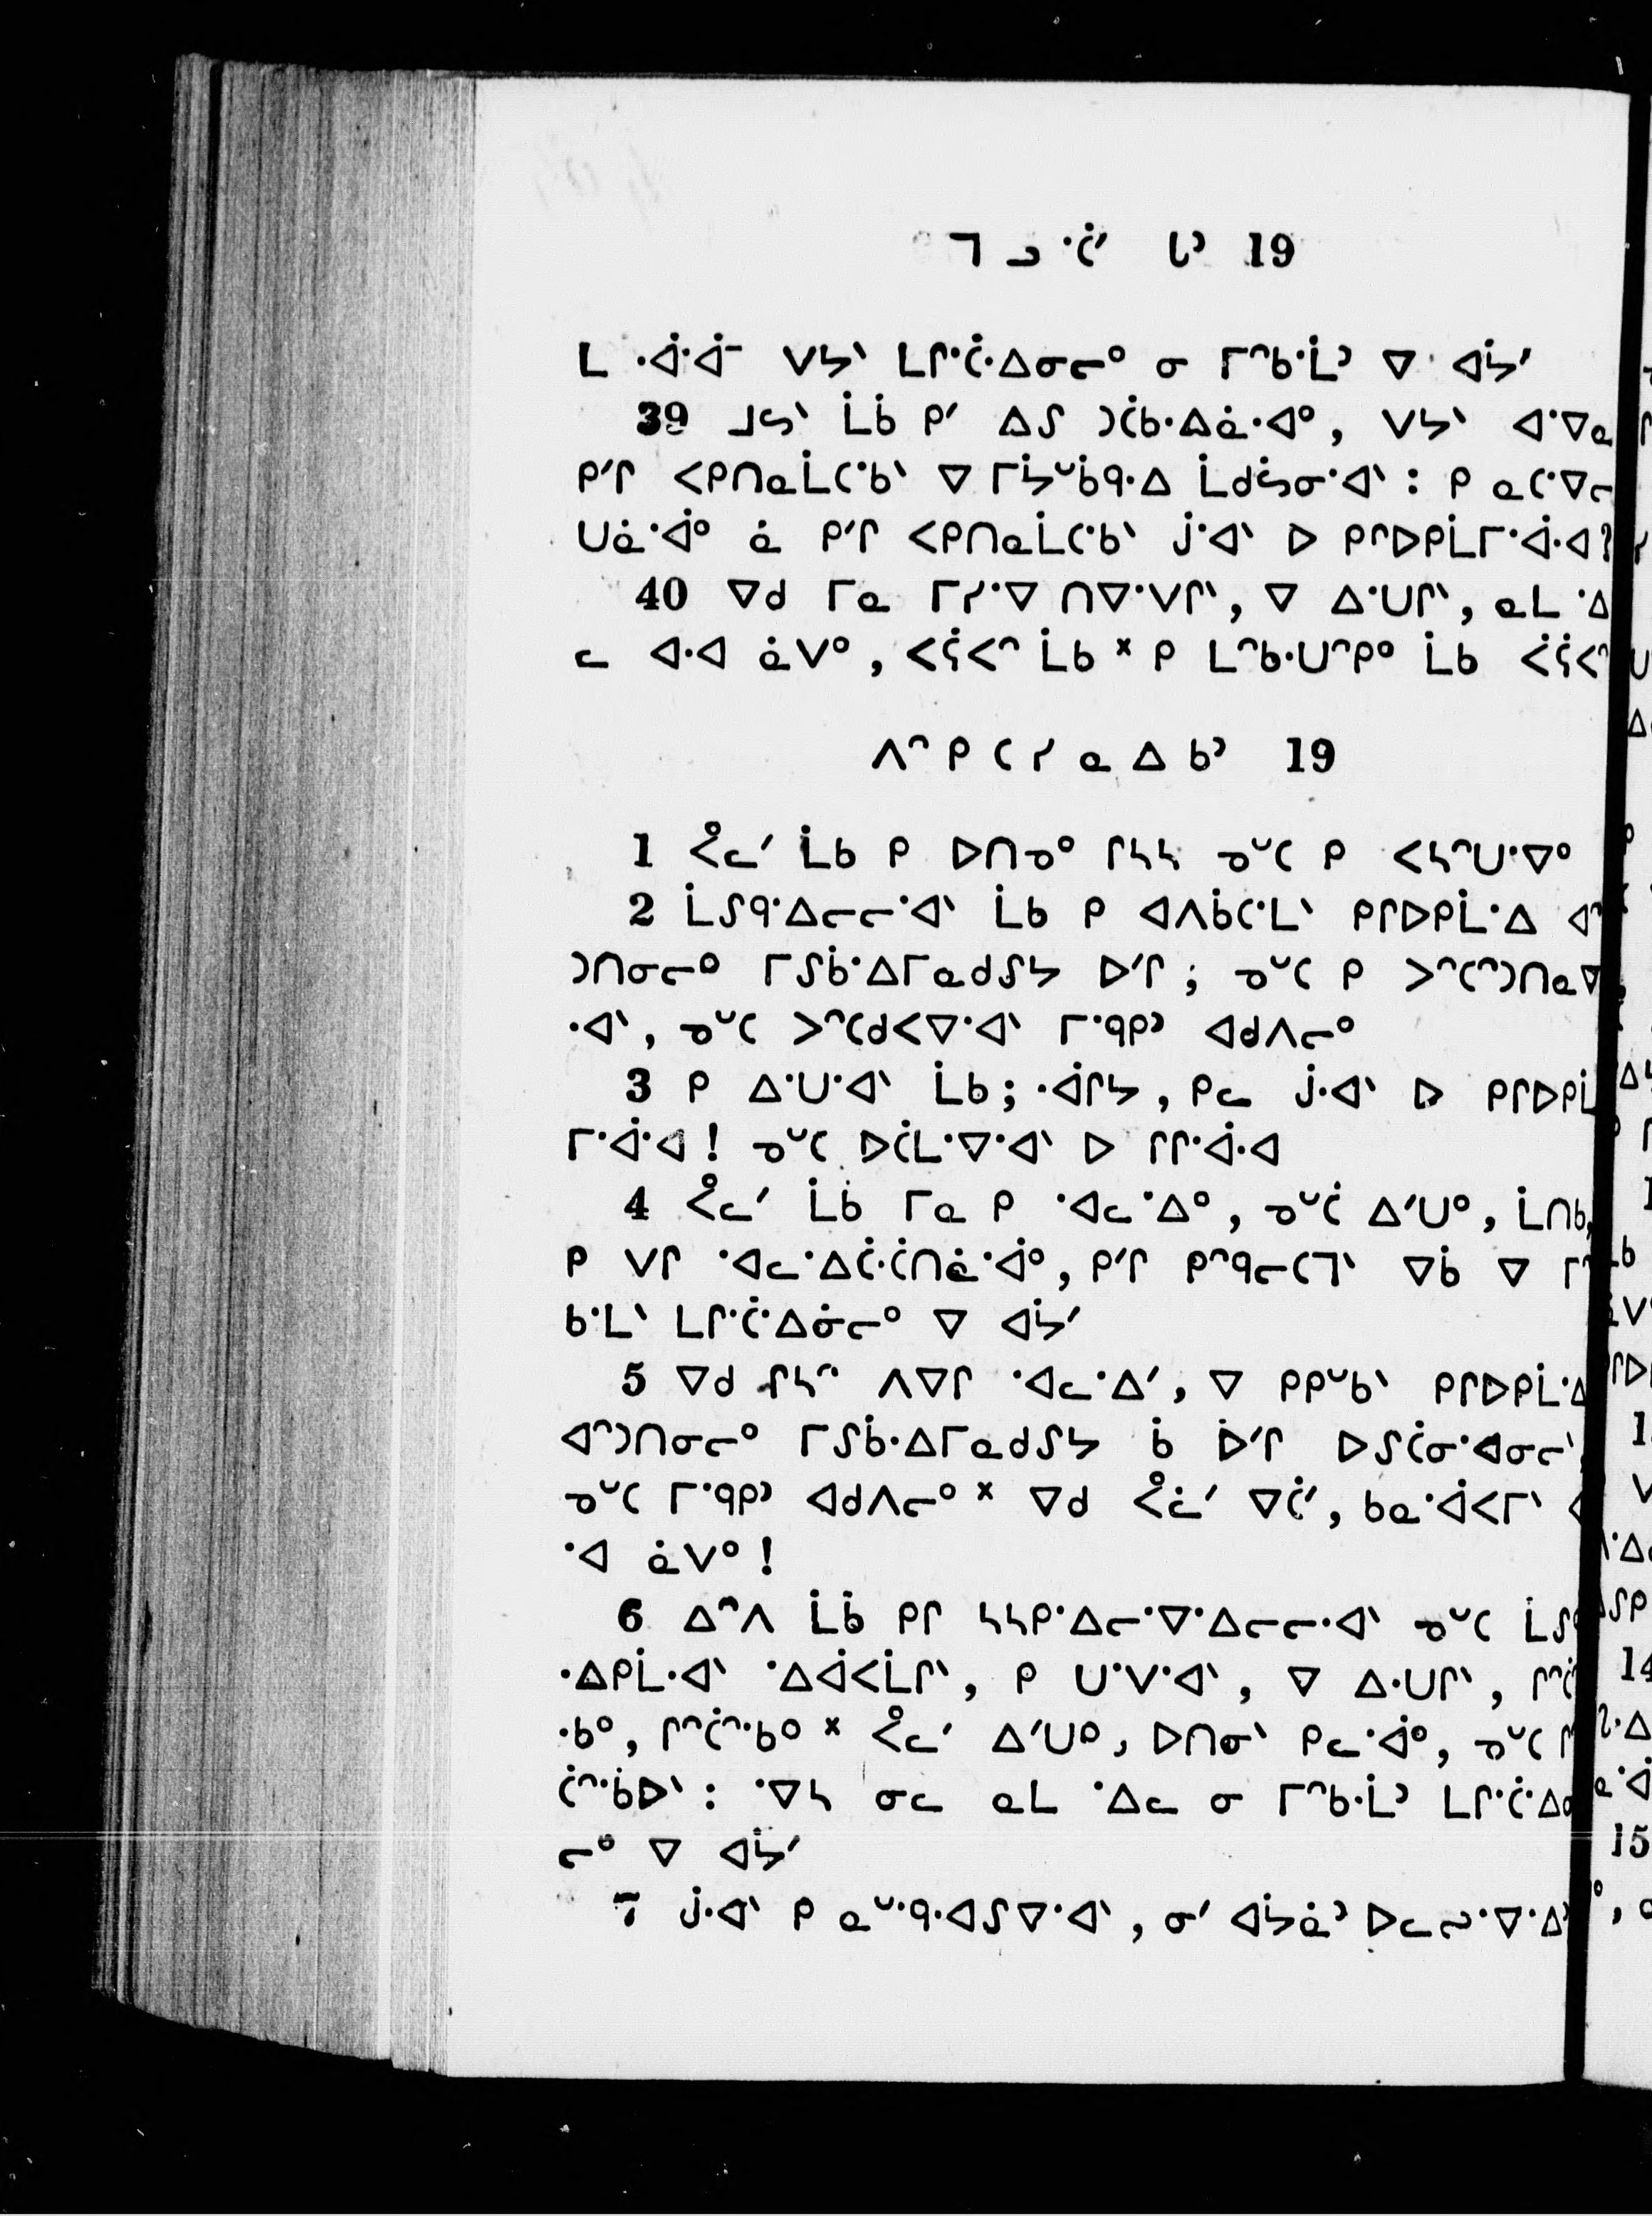 ᒣ ᓗ ᐧᑖᐟ ᒐᐣ 19
ᒪ ᐧᐚᐧᐋᐨ ᐯᔭᐠ ᒪᒋᐧᑖᐧᐃᓂᓕᐤ ᓂ ᒥᐢᑲᐧᒫᐣ ᐁ ᐊᔮᐟ
39 ᒧᓴᐠ ᒫᑳ ᑭᐟ ᐃᔑ ᑐᑖᑲᐧᐃᓈᐧᐊᐤ, ᐯᔭᐠ ᐊᐧᐁᓇ
ᑭᐟᒋ ᐸᑭᑎᓇᒫᑕᐧᑲᐠ ᐁ ᒥᔮᐡᑳᑫᐧᐃ ᒫᑯᓵᓂᐧᐊᐠ : ᑭ ᓇᑕᐧᐁᓕ
ᑌᓈᐧᐋᐤ ᓈ ᑭᐟᒋ ᐸᑭᑎᓇᒫᑕᐧᑲᐠ ᒎᐧᐊᐠ ᐅ ᑭᒋᐅᑭᒫᒥᐧᐋᐧᐊ?
40 ᐁᑯ ᒥᓇ ᒥᓯᐧᐁ ᑎᐁᐧᐯᒋᐠ, ᐁ ᐃᐧᑌᒋᐠ, ᓇᒪ ᐧᐃ
ᓚ ᐊᐧᐊ ᓈᐯᐤ, ᐸᕌᐸᐢ ᒫᑲ ᕽ ᑭ ᒪᐢᑲᐧᑌᐢᑭᐤ ᒫᑲ ᐸᕌᐸᐢ
ᐱᐢ ᑭ ᑕ ᓯ ᓇ ᐃ ᑲᐣ 19
1 ᐹᓚᐟ ᒫᑲ ᑭ ᐅᑎᓀᐤ ᒋᓴᓴ ᓀᐡᑕ ᑭ ᐸᓴᐢᑌᐧᐁᐤ
2 ᒫᔑᑫᐧᐃᓕᓕᐧᐊᐠ ᒫᑲ ᑭ ᐊᐱᑳᑕᐧᒪᐠ ᑭᒋᐅᑭᒫᐧᐃ ᐊᐢ
ᑐᑎᓂᓕᐤ ᒥᔑᑳᐧᐃᒥᓇᑯᔑᔭ ᐅᐟᒋ ; ᓀᐡᑕ ᑭ ᐳᐢᑕᐢᑐᑎᓇᐁ
ᐧᐊᐠ, ᓀᐡᑕ ᐳᐢᑕᑯᐸᐁᐧᐊᐠ ᒥᐧᑫᑭᐣ ᐊᑯᐱᓕᐤ
3 ᑭ ᐃᐧᑌᐧᐊᐠ ᒫᑲ ; ᐧᐋᒋᔭ, ᑭᓚ ᒎᐧᐊᐠ ᐅ ᑭᒋᐅᑭᒫ
ᒥᐧᐋᐧᐊ ! ᓀᐡᑕ ᐅᑖᒪᐧᐁᐧᐊᐠ ᐅ ᒋᒋᐧᐋᐧᐊ
4 ᐹᓚᐟ ᒫᑳ ᒥᓇ ᑭ ᐧᐊᓚᐧᐃᐤ, ᓀᐡᑖ ᐃᐟᑌᐤ, ᒫᑎᑲ,
ᑭ ᐯᒋ ᐧᐊᓚᐧᐃᑖᐧᑖᑎᓈᐧᐋᐤ, ᑭᐟᒋ ᑭᐢᑫᓕᑕᒣᐠ ᐁᑳ ᐁ ᒥᐢ
ᑲᐧᒪᐠ ᒪᒋᐧᑖᐧᐃᓃᓕᐤ ᐁ ᐊᔮᐟ
5 ᐁᑯ ᒋᓴᐢ ᐱᐁᒋ ᐧᐊᓚᐧᐃᐟ, ᐁ ᑭᑭᐡᑲᐠ ᑭᒋᐅᑭᒫᐧᐃ
ᐊᐢᑐᑎᓂᓕᐤ ᒥᔑᑳᐧᐃᒥᓇᑯᔑᔭ ᑳ ᐆᐟᒋ ᐅᔑᑖᓂᐧᐊᓂᓕᐠ,
ᓀᐡᑕ ᒥᐧᑫᑭᐣ ᐊᑯᐱᓕᐤ ᕽ ᐁᑯ ᐹᓛᐟ ᐁᑖᐟ, ᑲᓇᐧᐋᐸᒥᐠ ᐊ
ᐧᐊ ᓈᐯᐤ !
6 ᐃᐢᐱ ᒫᑳ ᑭᒋ ᓴᓴᑭᐧᐃᓕᐧᐁᐧᐃᓕᓕᐧᐊᐠ ᓀᐡᑕ ᒫᔑᑫ
ᐧᐃᑭᒫᐧᐊᐠ ᐧᐃᐚᐸᒫᒋᐠ, ᑭ ᑌᐧᐯᐧᐊᐠ, ᐁ ᐃᐧᑌᒋᐠ, ᒋᐢᑖ
ᐧᑲᐤ, ᒋᐢᑖᐢᐧᑲᐤ ᕽ ᐹᓚᐟ ᐃᐟᑌᐤ, ᐅᑎᓂᐠ ᑭᓚᐧᐋᐤ, ᓀᐡᑕ ᒋ
ᑖᐢᐧᑳᐅᐠ : ᐧᐁᓴ ᓂᓚ ᓇᒪ ᐧᐃᓚ ᓂ ᒥᐢᑲᐧᒫᐣ ᒪᒋᐧᑖᐧᐃᓂ
ᓕᐤ ᐁ ᐊᔮᐟ
7 ᒎᐧᐊᐠ ᑭ ᓇᐡᐧᑫᐧᐊᔑᐁᐧᐊᐠ, ᓂᐟ ᐊᔮᓈᐣ ᐅᓚᔓᐧᐁᐧᐃᐣ